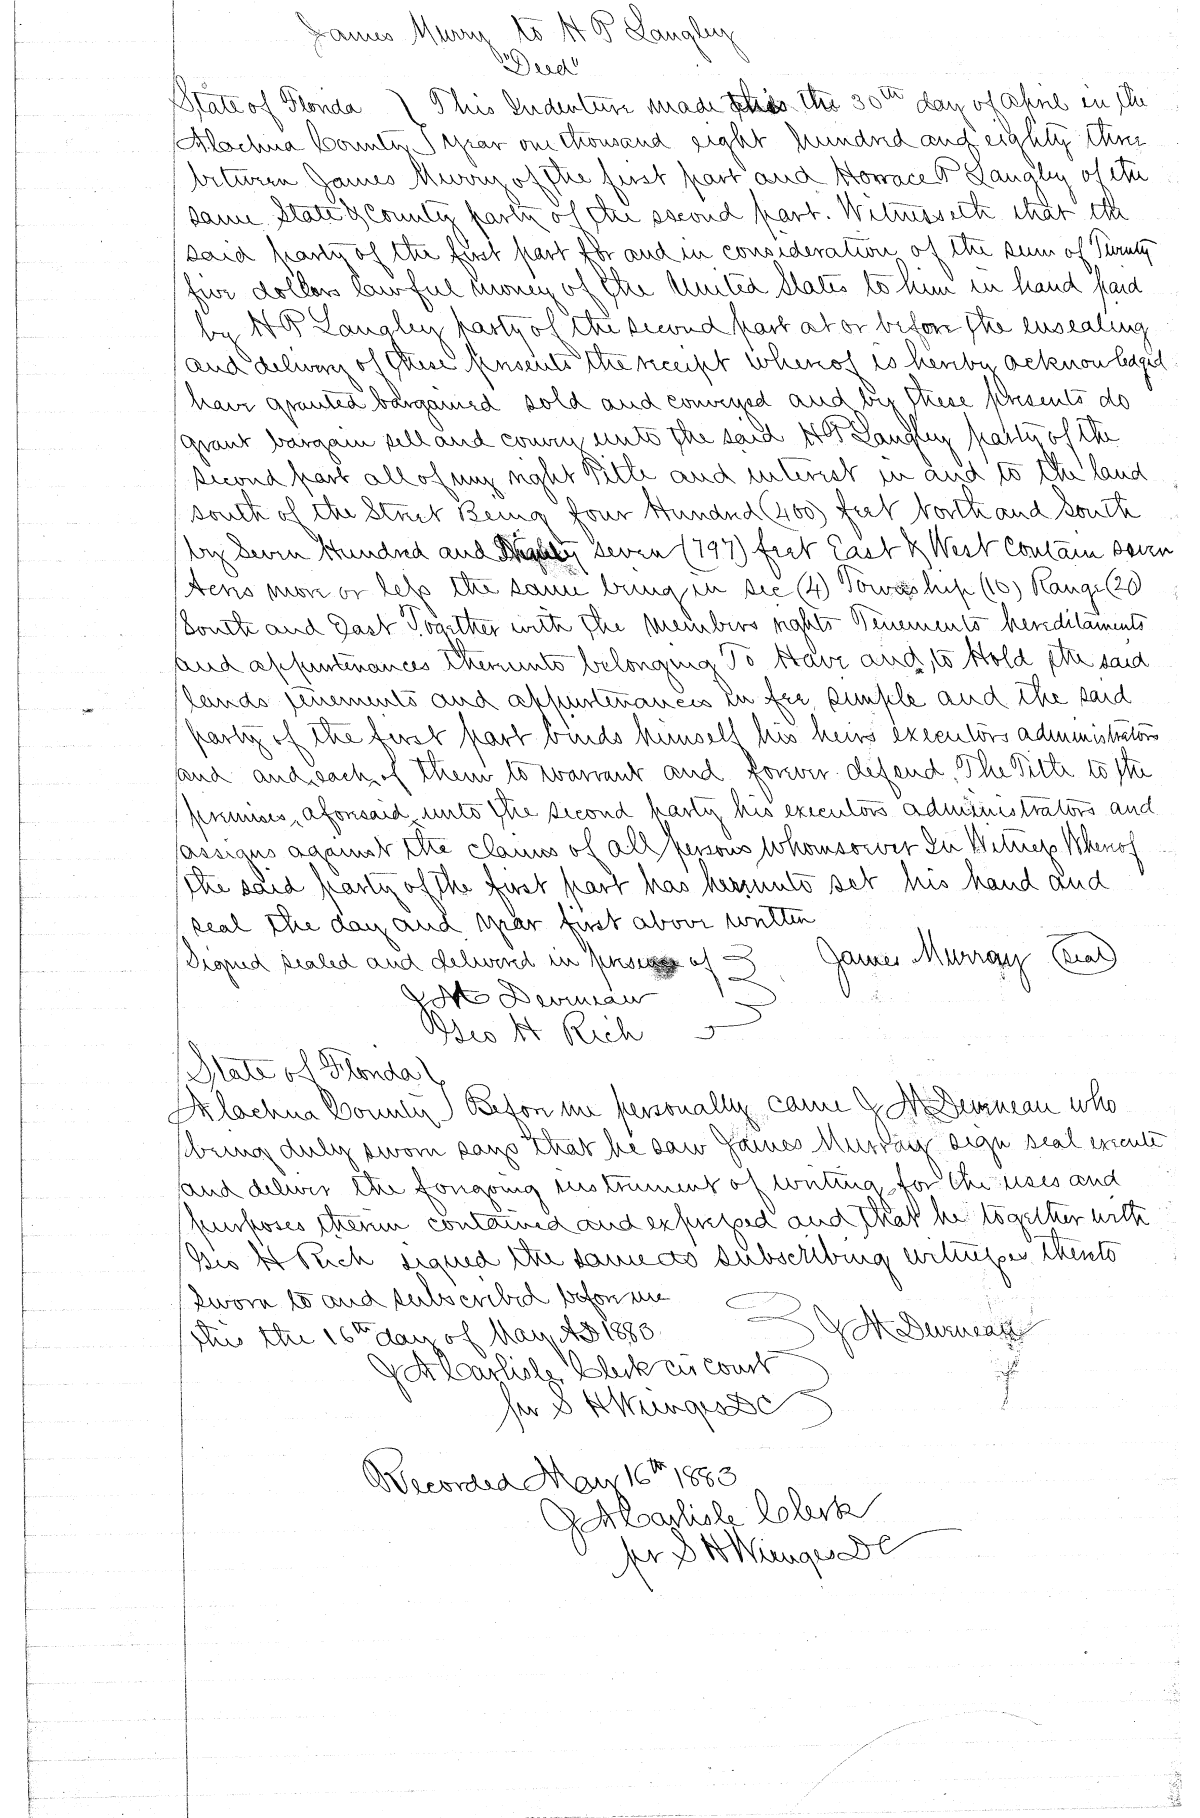 James Murry to H P Langley
"Deed"
State of Florida } This Indenture made this the 30th day of April in the
Alachua County } year one thousand eight hundred and eighty three
between James Murry of the first part and Horrace P Langley of the
same State & County party of the second part. Witnesseth that the
said party of the first part for and in consideration of the sum of Twenty
five dollars lawful money of the United States to him in hand paid
by H P Langley party of the second part at or before the ensealing
and delivery of these presents the receipt whereof is hereby acknowledged
have granted bargained sold and conveyed and by these presents do
grant bargain sell and convey unto the said H P Langley party of the
second part all of my right Title and interest in and to the land
south of the Street Being four Hundred (400) feet North and South
by Seven Hundred and seven (797) feet East & West contain seven
Acres more or less the same being in sec (4) Township (10) Range (20)
South and East Together with the members rights Tenements hereditaments
and appurtenances thereunto belonging To Have and to Hold the said
lands tenements and appurtenances in fee simple and the said
party of the first part binds himself his heirs executors administrators
and and each of them to warrant and forever defend The Title to the
premises aforesaid unto the second party his executors administrators and
assigns against the claims of all persons whomsoever In Witness Whereof
the said party of the first part has hereunto set his hand and
seal the day and year first above written
Signed sealed and delivered in presence of } James Murray (Seal)
J M Devineau
Geo H Rich
State of Florida }
Alachua County } Before me personally came J M Devineau who
being duly sworn says that he saw James Murray sign seal execute
and deliver the foregoing instrument of writing for the uses and
purposes therein contained and expressed and that he together with
Geo H Rich signed the same as subscribing witnesses thereto
Sworn to and subscribed before me
this the 16th day of May AD 1883 } J M Devineau
J A Carlisle Clerk cir court
per S H Wienges DC
Recorded May 16th 1883
J A Carlisle Clerk
per S H Wienges DC